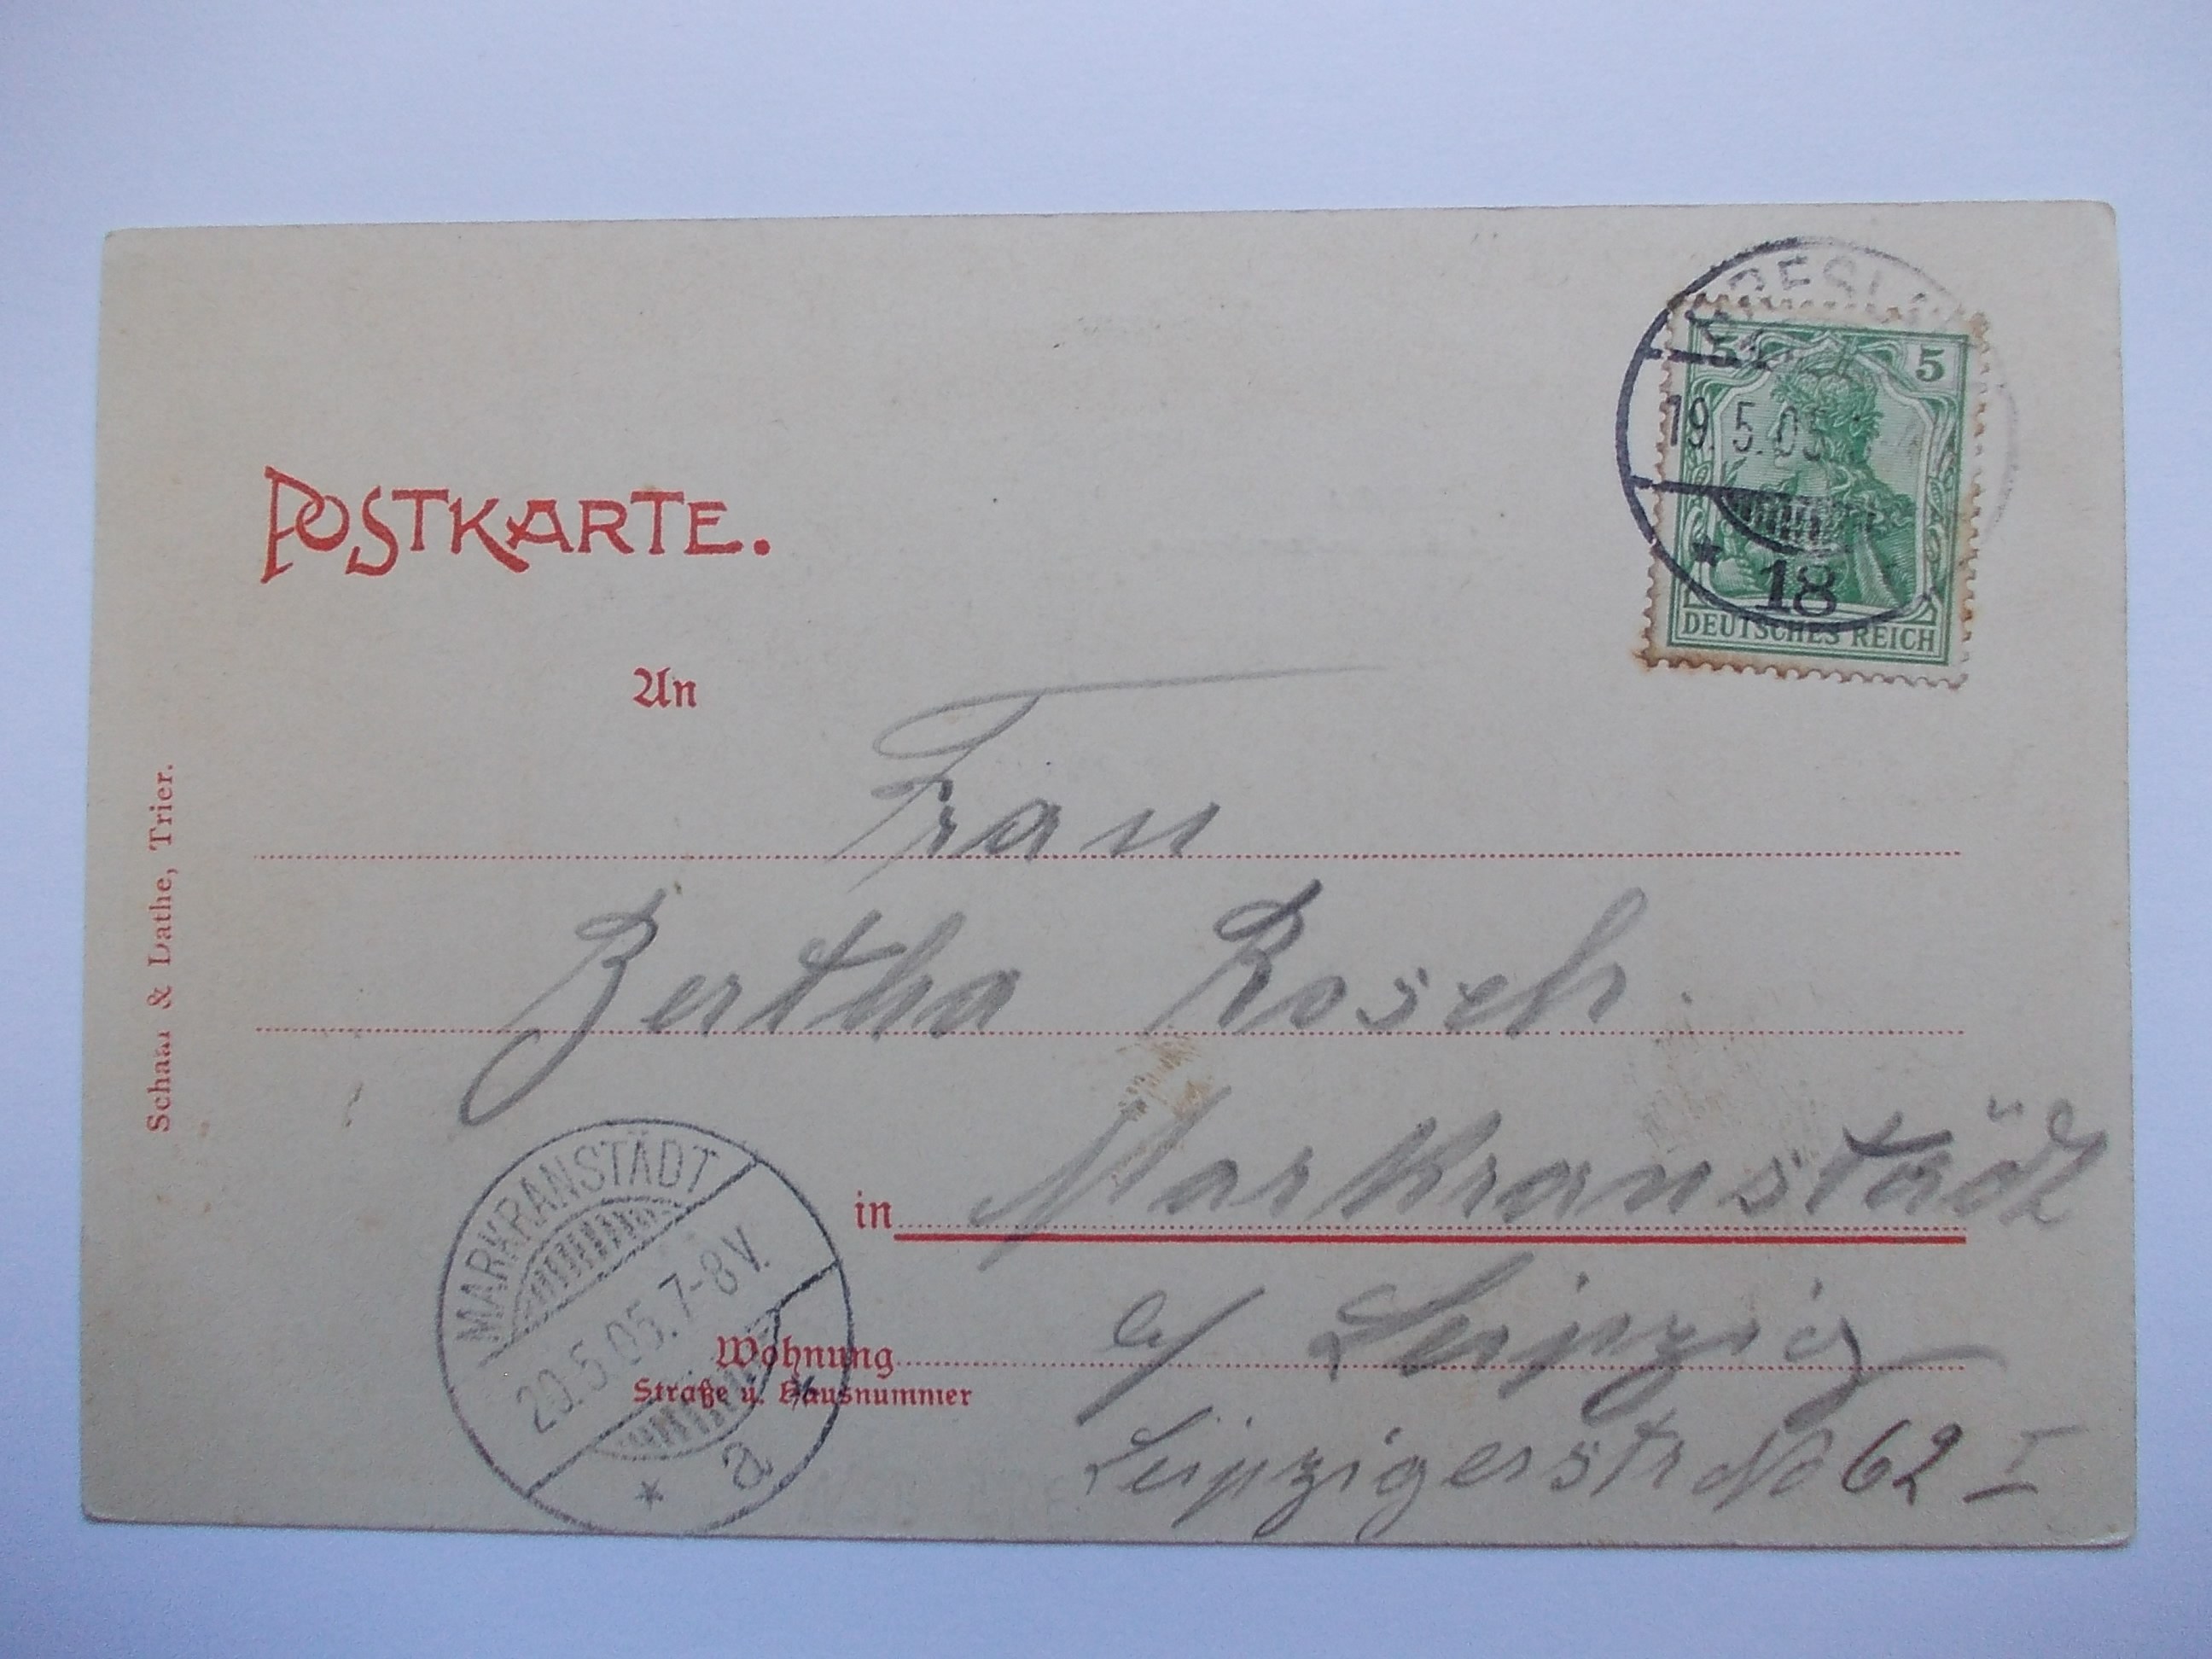 POSTKARTE.
BRESLAU
5 5
19.5.05.
18
DEUTSCHES REICH
An
Frau
Bertha Rosch.
in Markranstädt
b/ Leipzig
Wohnung
Straße u. Hausnummer
Leipzigerstr No 62 I
MARKRANSTÄDT
20.5.05.7-8V.
* a
Schaar & Dathe, Trier.